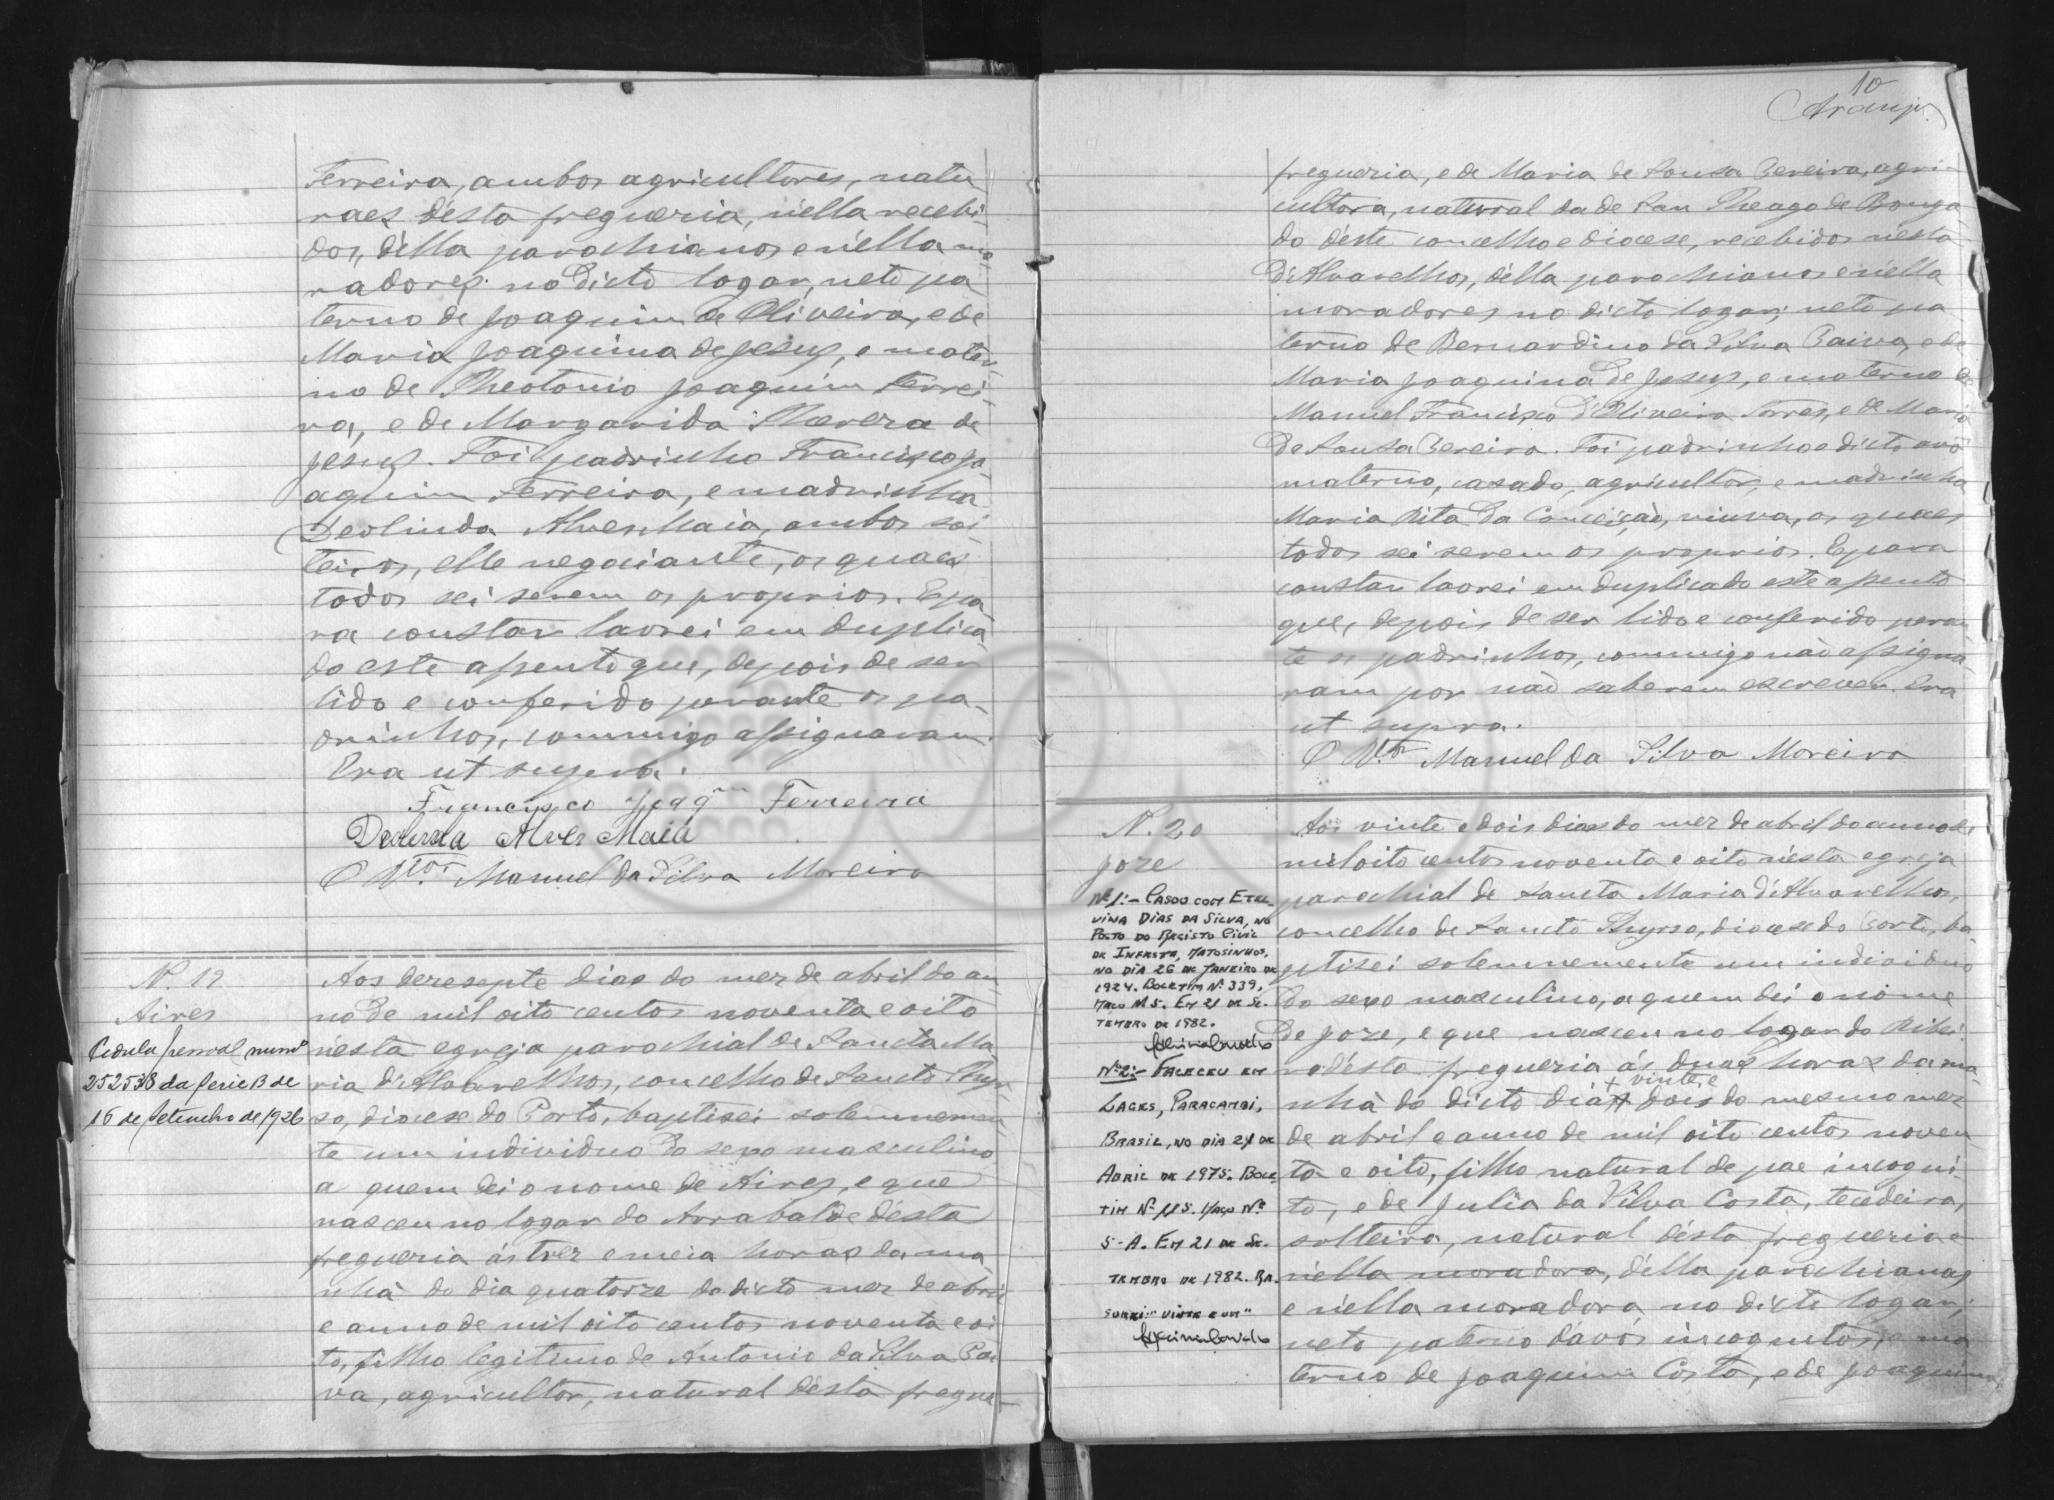 Ferreira, ambos agricultores, natu
raes désta fregueria, nélla recebi-
dos, délla parochianos e nélla mo
radores no dicto logar, neto pa
terno de Joaquim de Oliveira, e de
Maria Joaquina de Jesus, e mater
no de Theotonio Joaquim Ferrei-
ra, e de Margarida Therera de
Jesus. Foi padrinho Francisco Jo
aquim Ferreira, e madrinha
Deolinda Alves Maia, ambos sol
teiros, elle negociante, os quaes
todos sei serem os proprios. E pa
ra constar lavrei em duplica
do este assento que, depois de ser
lido e conferido perante os pa-
drinhos, commigo assignaram.
Era ut supra.
Francisco Joaqm Ferreira
Deolinda Alves Maia
O Vtor. Manuel da Silva Moreira
N. 19
Aires
Cedula pessoal numº
252538 da serie B de
16 de Setembro de 1926
Aos deresepte dias do mer de abril do an
no de mil oito centos noventa e oito
nésta egreja parochial de Sancta Ma
ria d'Alvarelhos, concelho de Sancto Thyr
so, diocese do Porto, baptisei solemnemen
te um individuo do sexo masculino
a quem dei o nome de Aires, e que
nasceu no logar do Arrabalde désta
fregueria ás trez e meia horas da ma
nhã do dia quatorze do dicto mez de abril
e anno de mil oito centos noventa e oi
to, filho legitimo de Antonio da Silva Pai
va, agricultor, natural désta fregue-
10
Araujo
fregueria, e de Maria de Sousa Pereira, agri-
cultora, natural da de San Theago de Bouga
do déste concelho e diocese, recebidos nésta
d'Alvarelhos, délla parochianos e nélla
moradores no dicto logar; neto pa
terno de Bernardino da Silva Paiva, e de
Maria Joaquina de Jesus, e materno de
Manuel Francisco d'Oliveira Torres, e de Maria
de Sousa Pereira. Foi padrinho o dicto avô
materno, casado, agricultor, e madrinha
Maria Rita da Conceição, viuva, os quaes
todos sei serem os proprios. E para
constar lavrei em duplicado este assento
que, depois de ser lido e conferido peran
te os padrinhos, commigo não assigna
ram por não saberem escrever. Era
ut supra.
O Vtor Manuel da Silva Moreira
N. 20
Joze
Nº 1:- Casou com Etel-
vina Dias da Silva, no
Posto do Registo Civil
de Infesta, Matosinhos,
no dia 26 de Janeiro de
1924. Boletim Nº 339,
Maço M. 5. Em 21 de Se-
tembro de 1982.
Nº 2:- Faleceu em
Lages, Paracambi,
Brasil, no dia 24 de
Abril de 1975. Bole
tim Nº 115. Maço Nº
5-A. Em 21 de Se-
tembro de 1982. Ra-
surei: "vinte e um"
Aos vinte e dois dias do mer de abril do anno de
mil oito centos noventa e oito nésta egreja
parochial de Sancta Maria d'Alvarelhos,
concelho de Sancto Thyrso, diocese do Porto, ba
ptisei solemnemente um individuo
do sexo masculino, a quem dei o nome
de Joze, e que nasceu no logar do Ribei
ro désta fregueria ás duas horas da ma-
+ vinte e
nhã do dicto dia dois do mesmo mez
de abril e anno de mil oito centos noven
ta e oito, filho natural de pae incogni-
to, e de Julia da Silva Costa, tecedeira,
solteira, natural désta fregueria e
nélla moradora, délla parochiana
e nélla moradora no dicto logar;
neto paterno d'avós incognitos, e ma
terno de Joaquim Costa, e de Joaquina